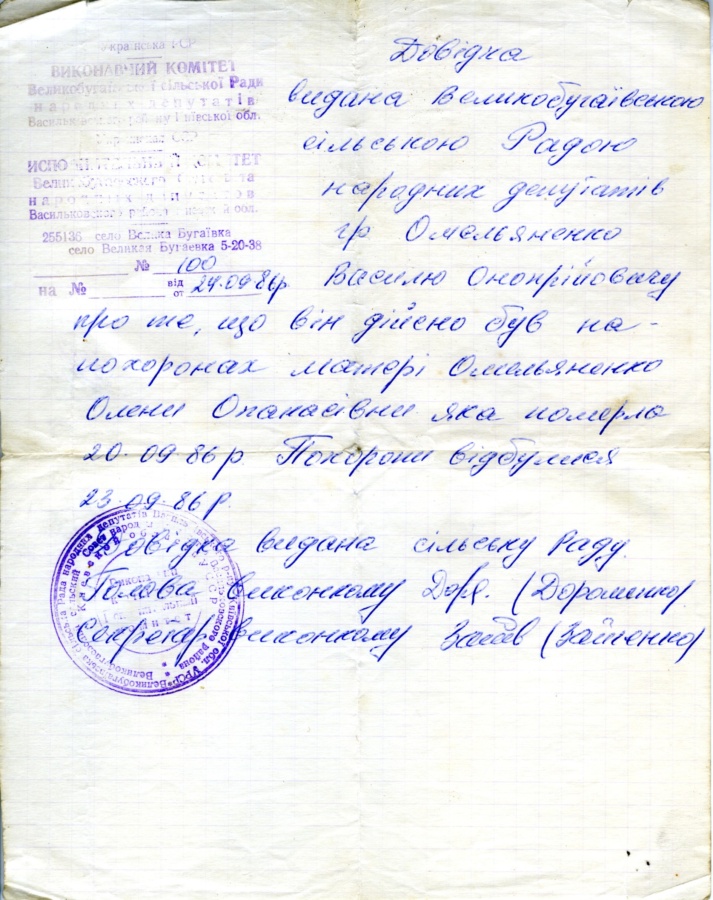 Українська РСР
ВИКОНАВЧИЙ КОМІТЕТ
Великобугаївської сільської Ради
народних депутатів
Васильківського району Київської обл.
Украинская ССР
ИСПОЛНИТЕЛЬНЫЙ КОМИТЕТ
народных депутатов
Васильковского района Киевской обл.
255136 село Велика Бугаївка
село Великая Бугаевка 5-20-38
№ 100
на № від от 24.09.86р.
Довідка
видана Великобугаївською
сільською Радою
народних депутатів
гр. Омельяненко
Василю Онопрійовичу
про те, що він дійсно був на-
похоронах матері Омельяненко
Олени Опанасівни яка померла
20.09.86р. Похорони відбулися
23.09.86р.
Довідка видана сільську Раду.
Голова виконкому (Дорошенко)
Секретар виконкому